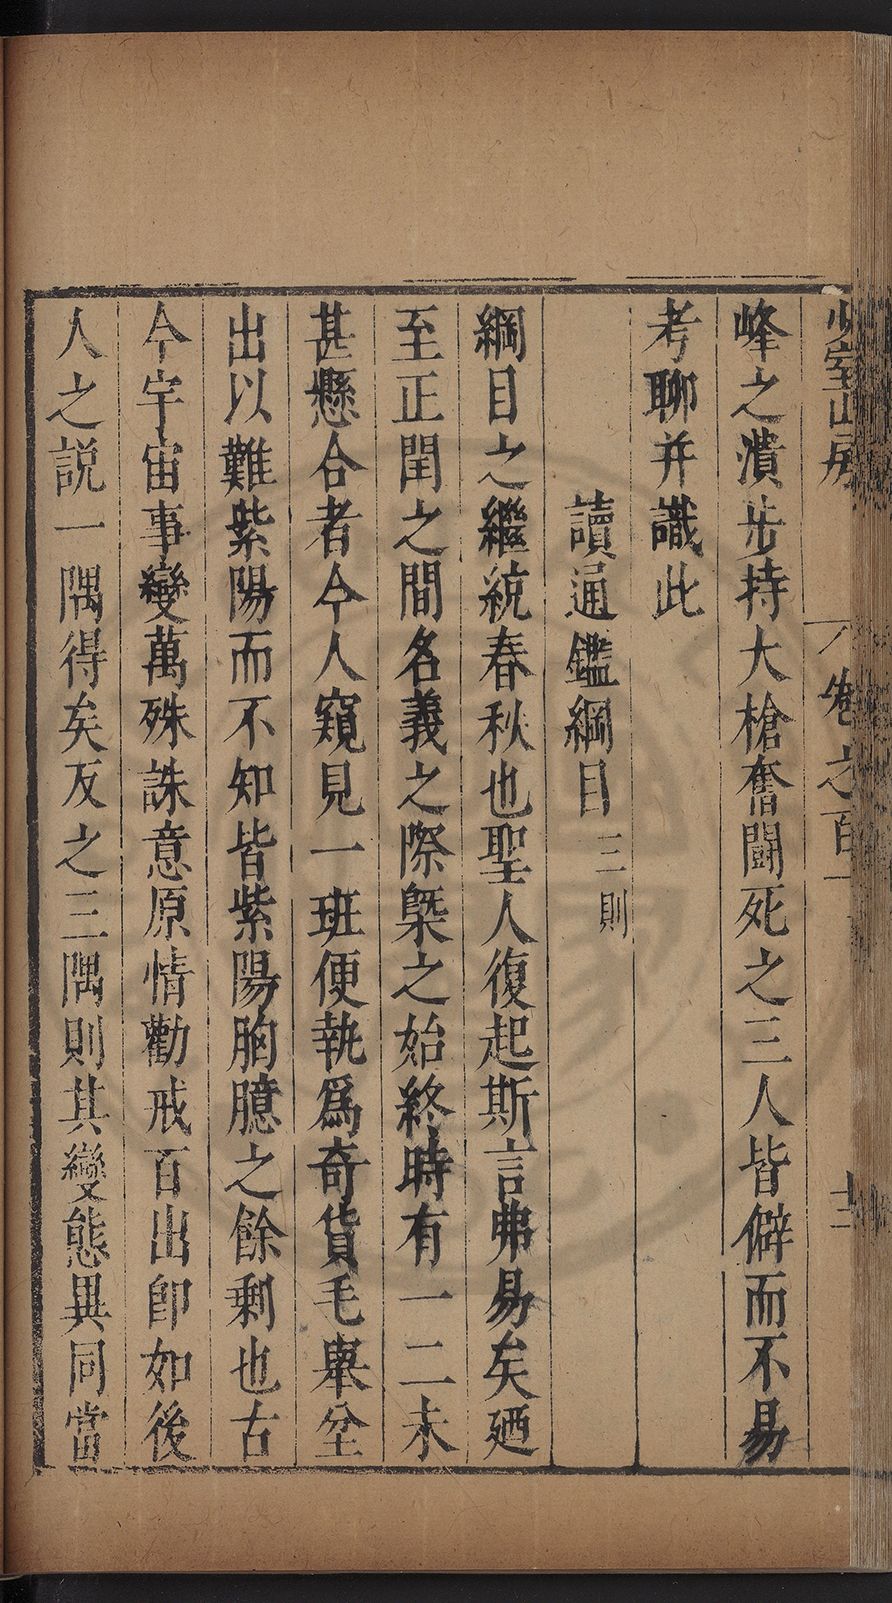 少室山房
卷之百一
十二
峰之潰步持大槍奮闘死之三人皆僻而不易
考聊并識此
讀通鑑綱目三則
綱目之繼統春秋也聖人復起斯言弗易矣廼
至正閏之間名義之際槩之始終時有一二未
甚懸合者今人窺見一班便執爲奇貨毛舉坌
出以難紫陽而不知皆紫陽胸臆之餘剩也古
今宇宙事變萬殊誅意原情勸戒百出卽如後
人之説一隅得矣反之三隅則其變態異同當